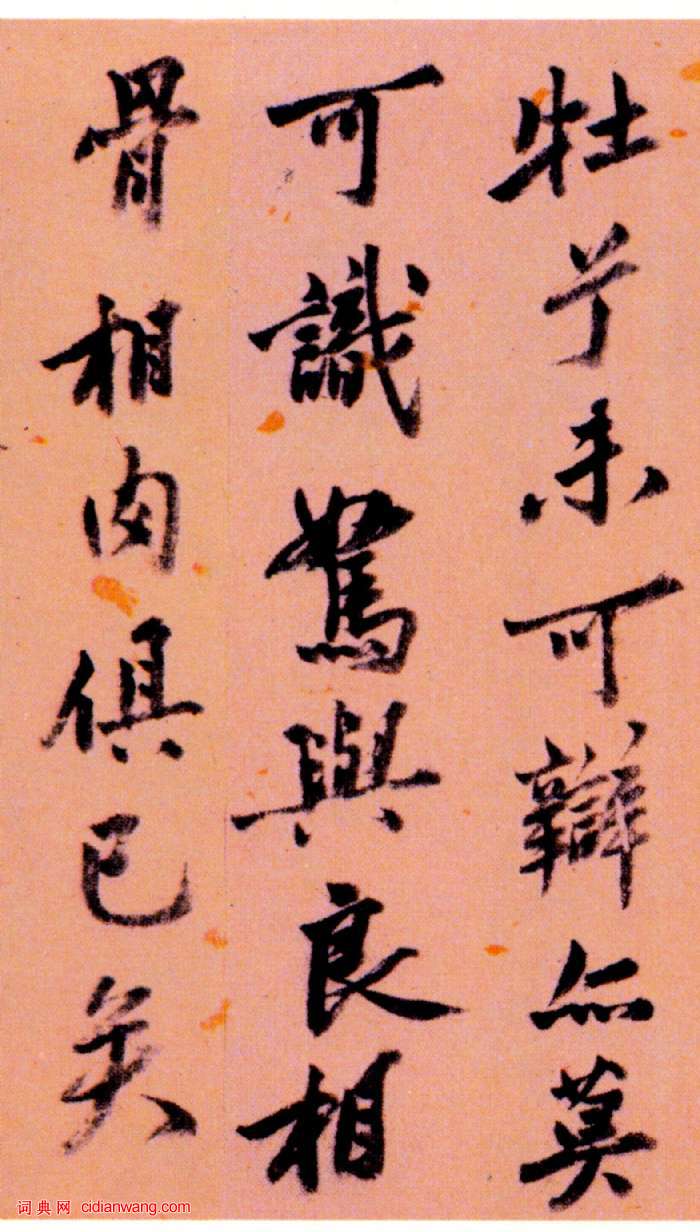 牡兮未可辯亦莫
可識駑與良相
骨相肉俱已矣
词典网 cidianwang.com